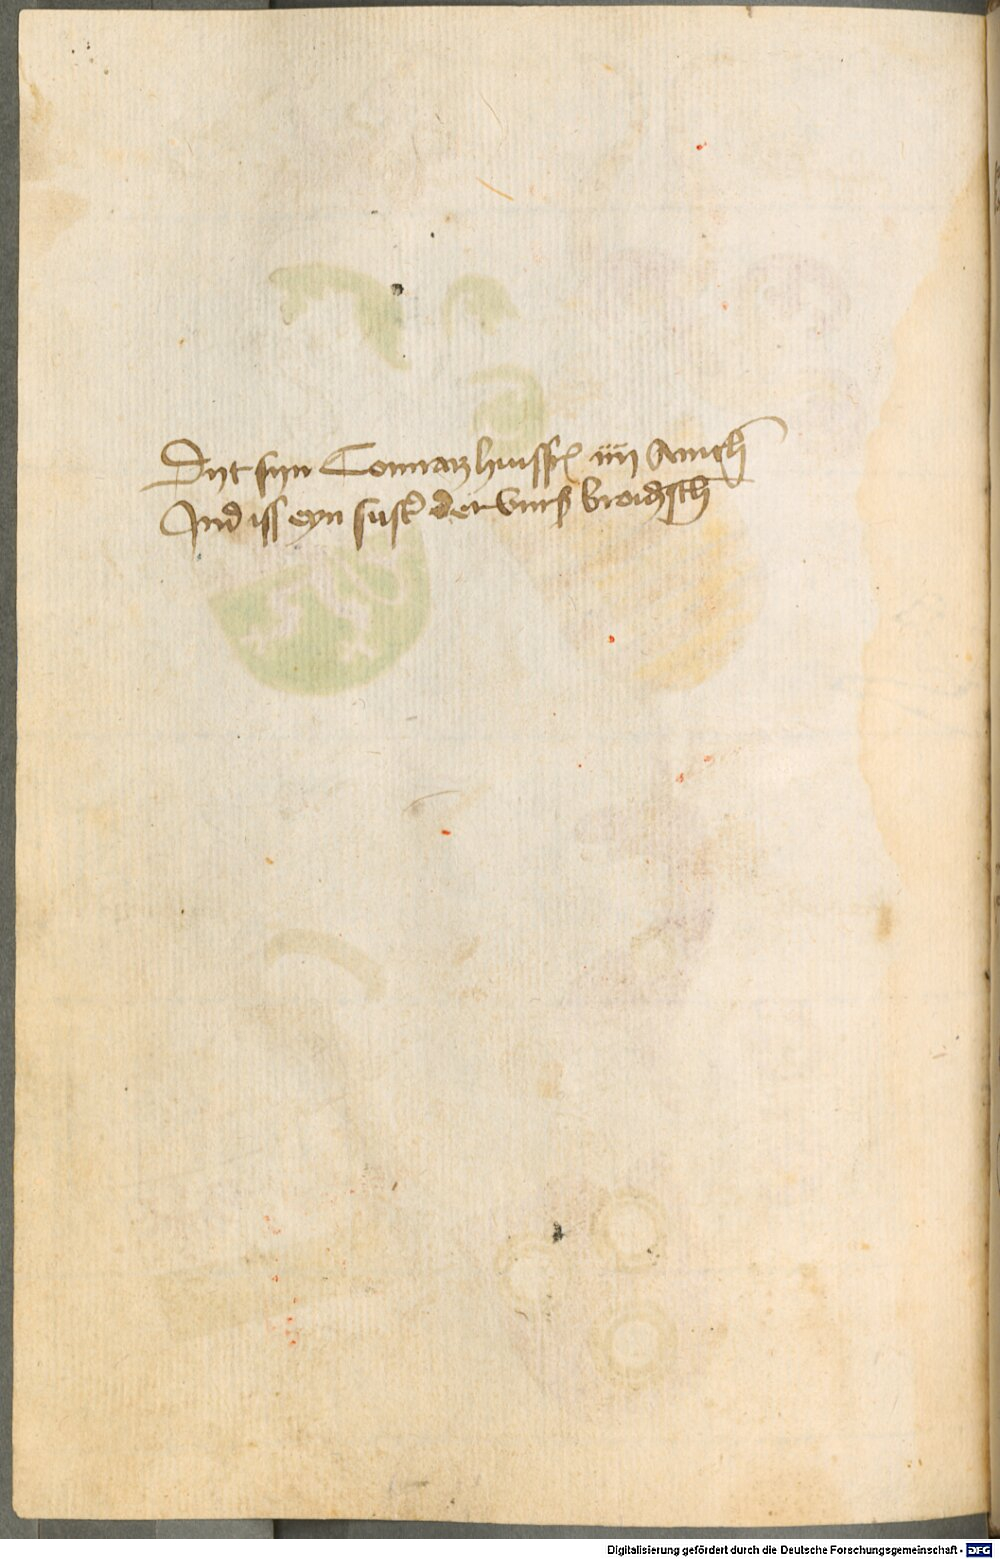 Dyt syn Conratz huisfr iiij Anich
Ind iss eyn sust der vurs broidsch
Digitalisierung gefördert durch die Deutsche Forschungsgemeinschaft - DFG